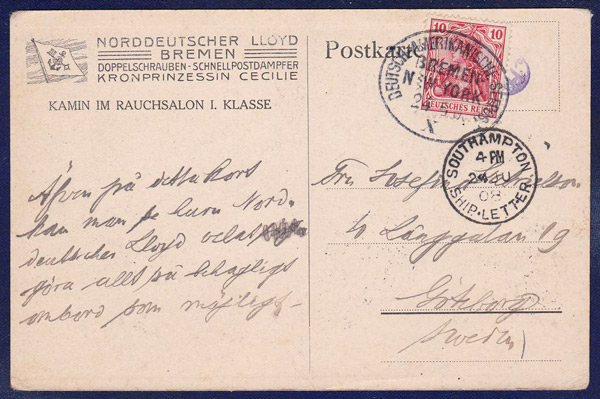 NORDDEUTSCHER LLOYD
BREMEN
DOPPELSCHRAUBEN-SCHNELLPOSTDAMPFER
KRONPRINZESSIN CECILIE
KAMIN IM RAUCHSALON I. KLASSE
Postkarte
10 10
DEUTSCHES REICH
DEUTSCH-AMERIKANISCHE SEEPOST
BREMEN-
NEW YORK
SOUTHAMPTON
4 PM
24 JU
08
SHIP-LETTER
Äfven på detta kort
kan man se huru Nord-
deutscher Lloyd
göra allt så behagligt
ombord som möjligt-
Fru Josefin
19
Göteborg
(Sweden)